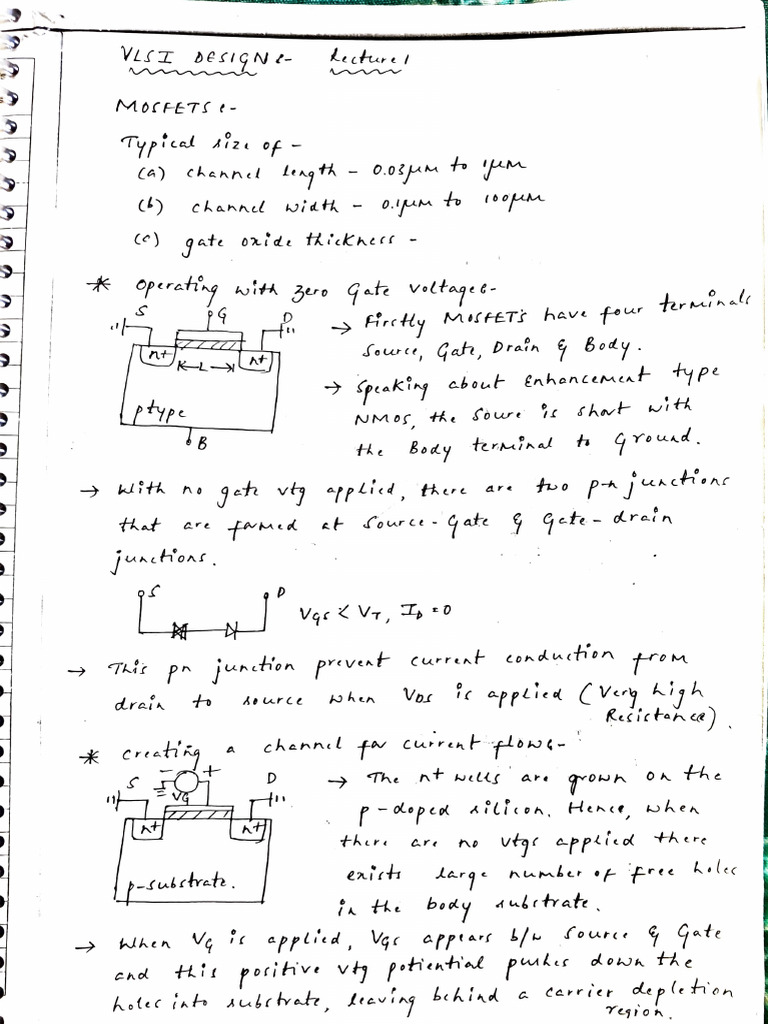 VLSI DESIGN:- Lecture 1
MOSFETS :-
Typical size of -
(a) channel length - 0.03μm to 1μm
(b) channel width - 0.1μm to 100μm
(c) gate oxide thickness -
* Operating with zero Gate voltage:-
S G D
n+ L n+
ptype
B
→ Firstly MOSFETs have four terminals
Source, Gate, Drain & Body.
→ Speaking about Enhancement type
NMOS, the Soure is short with
the Body terminal to Ground.
→ With no gate vtg applied, there are two p-n junctions
that are formed at Source-Gate & Gate-drain
junctions.
S D
VGS < VT, ID = 0
→ This pn junction prevent current conduction from
drain to source when VDS is applied (Very high
Resistance).
* Creating a channel for current flow:-
S - + D
VG
n+ n+
p-substrate.
→ The n+ wells are grown on the
p-doped silicon. Hence, when
there are no vtgs applied there
exists large number of free holes
in the body substrate.
→ When VG is applied, VGS appears b/w Source & Gate
and this positive vtg potiential pushes down the
holes into substrate, leaving behind a carrier depletion
region.